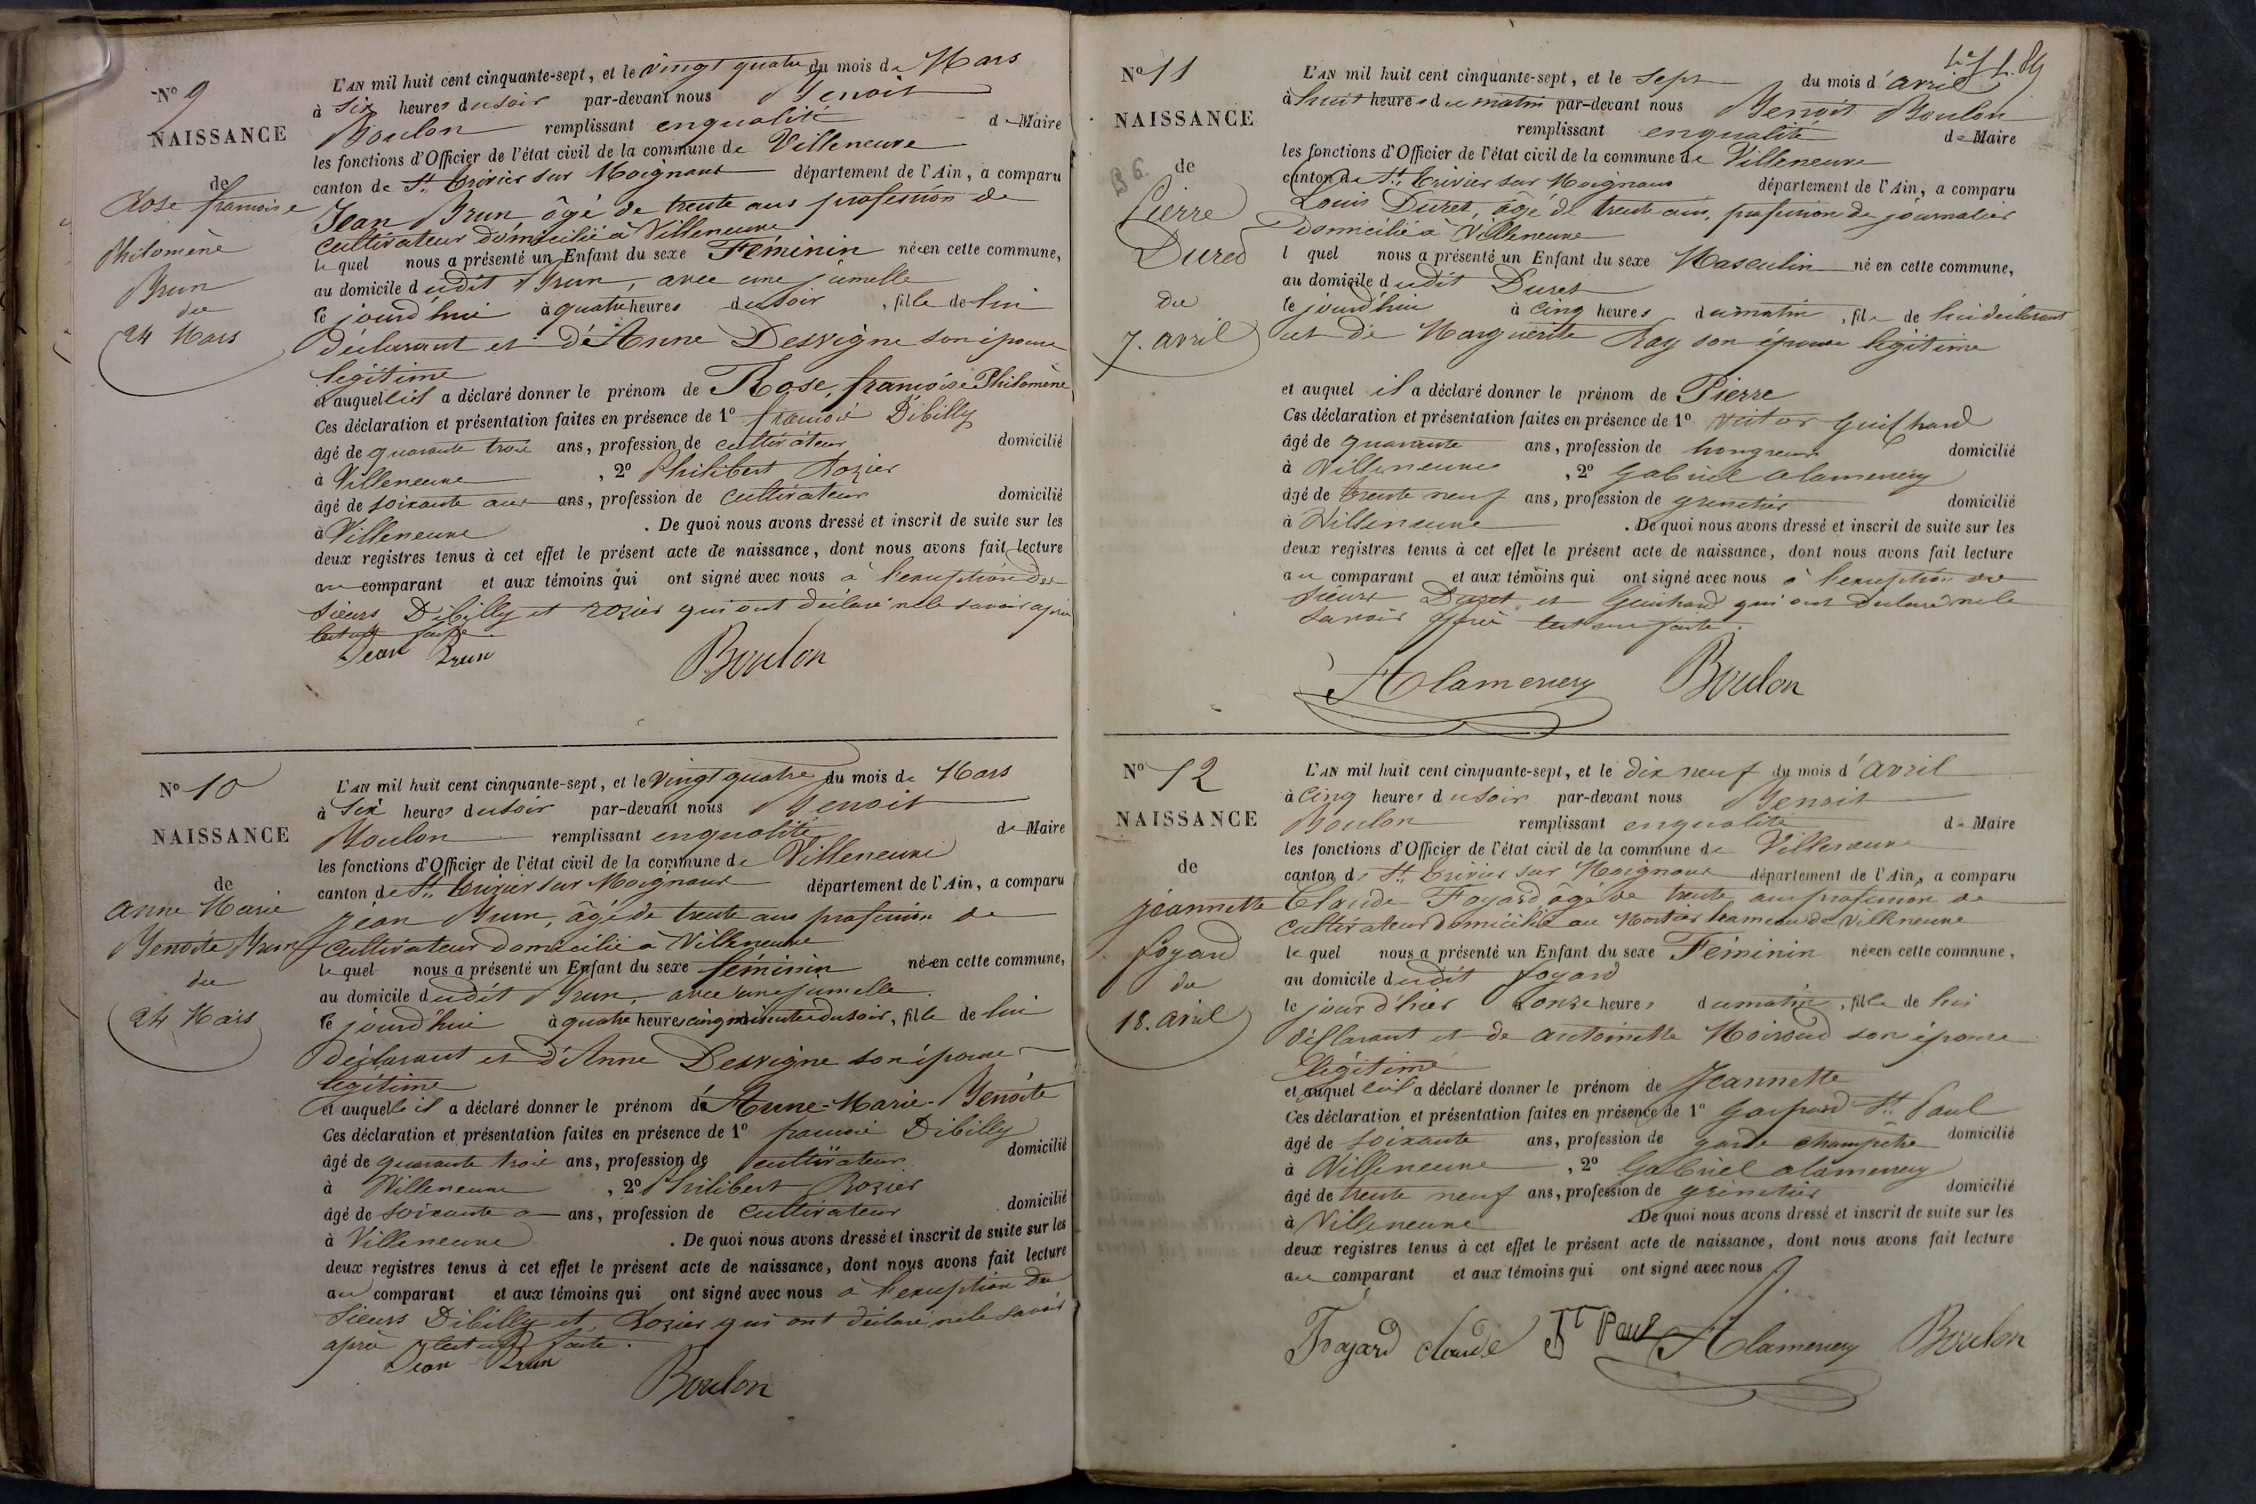 N° 9
NAISSANCE
de
Rose françoise
Philomène
Brun
du
24 Mars
L'AN mil huit cent cinquante-sept, et le vingt quatre du mois de Mars
à six heures du soir par-devant nous Benoit
Boulon remplissant en qualité de Maire
les fonctions d'Officier de l'état civil de la commune de Villeneuve
canton de St. Trivier sur Moignans département de l'Ain, a comparu
Jean Brun âgé de trente ans profession de
cultivateur domicilié à Villeneuve
le quel nous a présenté un Enfant du sexe Féminin née en cette commune,
au domicile dudit Brun, avec une jumelle
le jourd'hui à quatre heures du soir, fille de lui
déclarant et d'Anne Desvigne son épouse
légitime
et auquelle il a déclaré donner le prénom de Rose, françoise Philomène
Ces déclaration et présentation faites en présence de 1° françois Dibilly
âgé de quarante trois ans, profession de cultivateur domicilié
à Villeneuve, 2° Philibert Rozier
âgé de soixante ans, profession de cultivateur domicilié
à Villeneuve. De quoi nous avons dressé et inscrit de suite sur les
deux registres tenus à cet effet le présent acte de naissance, dont nous avons fait lecture
au comparant et aux témoins qui ont signé avec nous à l'exception des
sieurs Dibilly et rozier qui ont déclaré ne le savoir après
lecture faite
Jean Brun Boulon
N° 10
NAISSANCE
de
Anne Marie
Benoite Brun
du
24 Mars
L'AN mil huit cent cinquante-sept, et le vingt quatre du mois de Mars
à six heures du soir par-devant nous Benoit
Boulon remplissant en qualité de Maire
les fonctions d'Officier de l'état civil de la commune de Villeneuve
canton de St. Trivier sur Moignans département de l'Ain, a comparu
jean Brun, âgé de trente ans profession de
cultivateur domicilié à Villeneuve
le quel nous a présenté un Enfant du sexe féminin née en cette commune,
au domicile dudit Brun, avec une jumelle.
le jourd'hui à quatre heures cinq minutes du soir, fille de lui
déclarant et d'Anne Desvigne son épouse
légitime
et auquelle il a déclaré donner le prénom de Anne-Marie-Benoite
Ces déclaration et présentation faites en présence de 1° françois Dibilly
âgé de quarante trois ans, profession de cultivateur domicilié
à Villeneuve, 2° Philibert Rozier
âgé de soixante ans, profession de cultivateur domicilié
à Villeneuve. De quoi nous avons dressé et inscrit de suite sur les
deux registres tenus à cet effet le présent acte de naissance, dont nous avons fait lecture
au comparant et aux témoins qui ont signé avec nous à l'exception des
sieurs Dibilly et Rozier qui ont déclaré ne le savoir
après lecture faite.
Jean Brun
Boulon
N° 11
NAISSANCE
de
Pierre
Duret
du
7. avril
L'AN mil huit cent cinquante-sept, et le sept du mois d'avril
à huit heures du matin par-devant nous Benoit Boulon
remplissant en qualité de Maire
les fonctions d'Officier de l'état civil de la commune de Villeneuve
canton de St. Trivier sur Moignans département de l'Ain, a comparu
Louis Duret, âgé de trente ans, profession de journalier
domicilié à Villeneuve
l quel nous a présenté un Enfant du sexe Masculin né en cette commune,
au domicile dudit Duret
le jourd'hui à cinq heures du matin, fils de lui déclarant
et de Marguerite Ray son épouse légitime
et auquel il a déclaré donner le prénom de Pierre
Ces déclaration et présentation faites en présence de 1° Victor Guichard
âgé de quarante ans, profession de hongreur domicilié
à Villeneuve, 2° Gabriel alamenery
âgé de trente neuf ans, profession de grenetier domicilié
à Villeneuve. De quoi nous avons dressé et inscrit de suite sur les
deux registres tenus à cet effet le présent acte de naissance, dont nous avons fait lecture
au comparant et aux témoins qui ont signé avec nous à l'exception des
sieurs Duret et Guichard qui ont déclaré ne le
savoir après lecture faite.
Alamenery Boulon
N° 12
NAISSANCE
de
jeannette
foyard
du
18. avril
L'AN mil huit cent cinquante-sept, et le dix neuf du mois d'avril
à cinq heures du soir par-devant nous Benoit
Boulon remplissant en qualité de Maire
les fonctions d'Officier de l'état civil de la commune de Villeneuve
canton de St. Trivier sur Moignans département de l'Ain, a comparu
Claude Foyard âgé de trente ans profession de
cultivateur domicilié au hameau de Villeneuve
le quel nous a présenté un Enfant du sexe Féminin née en cette commune,
au domicile dudit foyard
le jour d'hier à onze heures du matin, fille de lui
déclarant et de antoinette Moiroud son épouse
légitime
et auquel il a déclaré donner le prénom de Jeannette
Ces déclaration et présentation faites en présence de 1° Gaspard St. Paul
âgé de soixante ans, profession de garde champêtre domicilié
à Villeneuve, 2° Gabriel alamenery
âgé de trente neuf ans, profession de grenetier domicilié
à Villeneuve. De quoi nous avons dressé et inscrit de suite sur les
deux registres tenus à cet effet le présent acte de naissance, dont nous avons fait lecture
au comparant et aux témoins qui ont signé avec nous
Foyard claude St Paul Alamenery Boulon